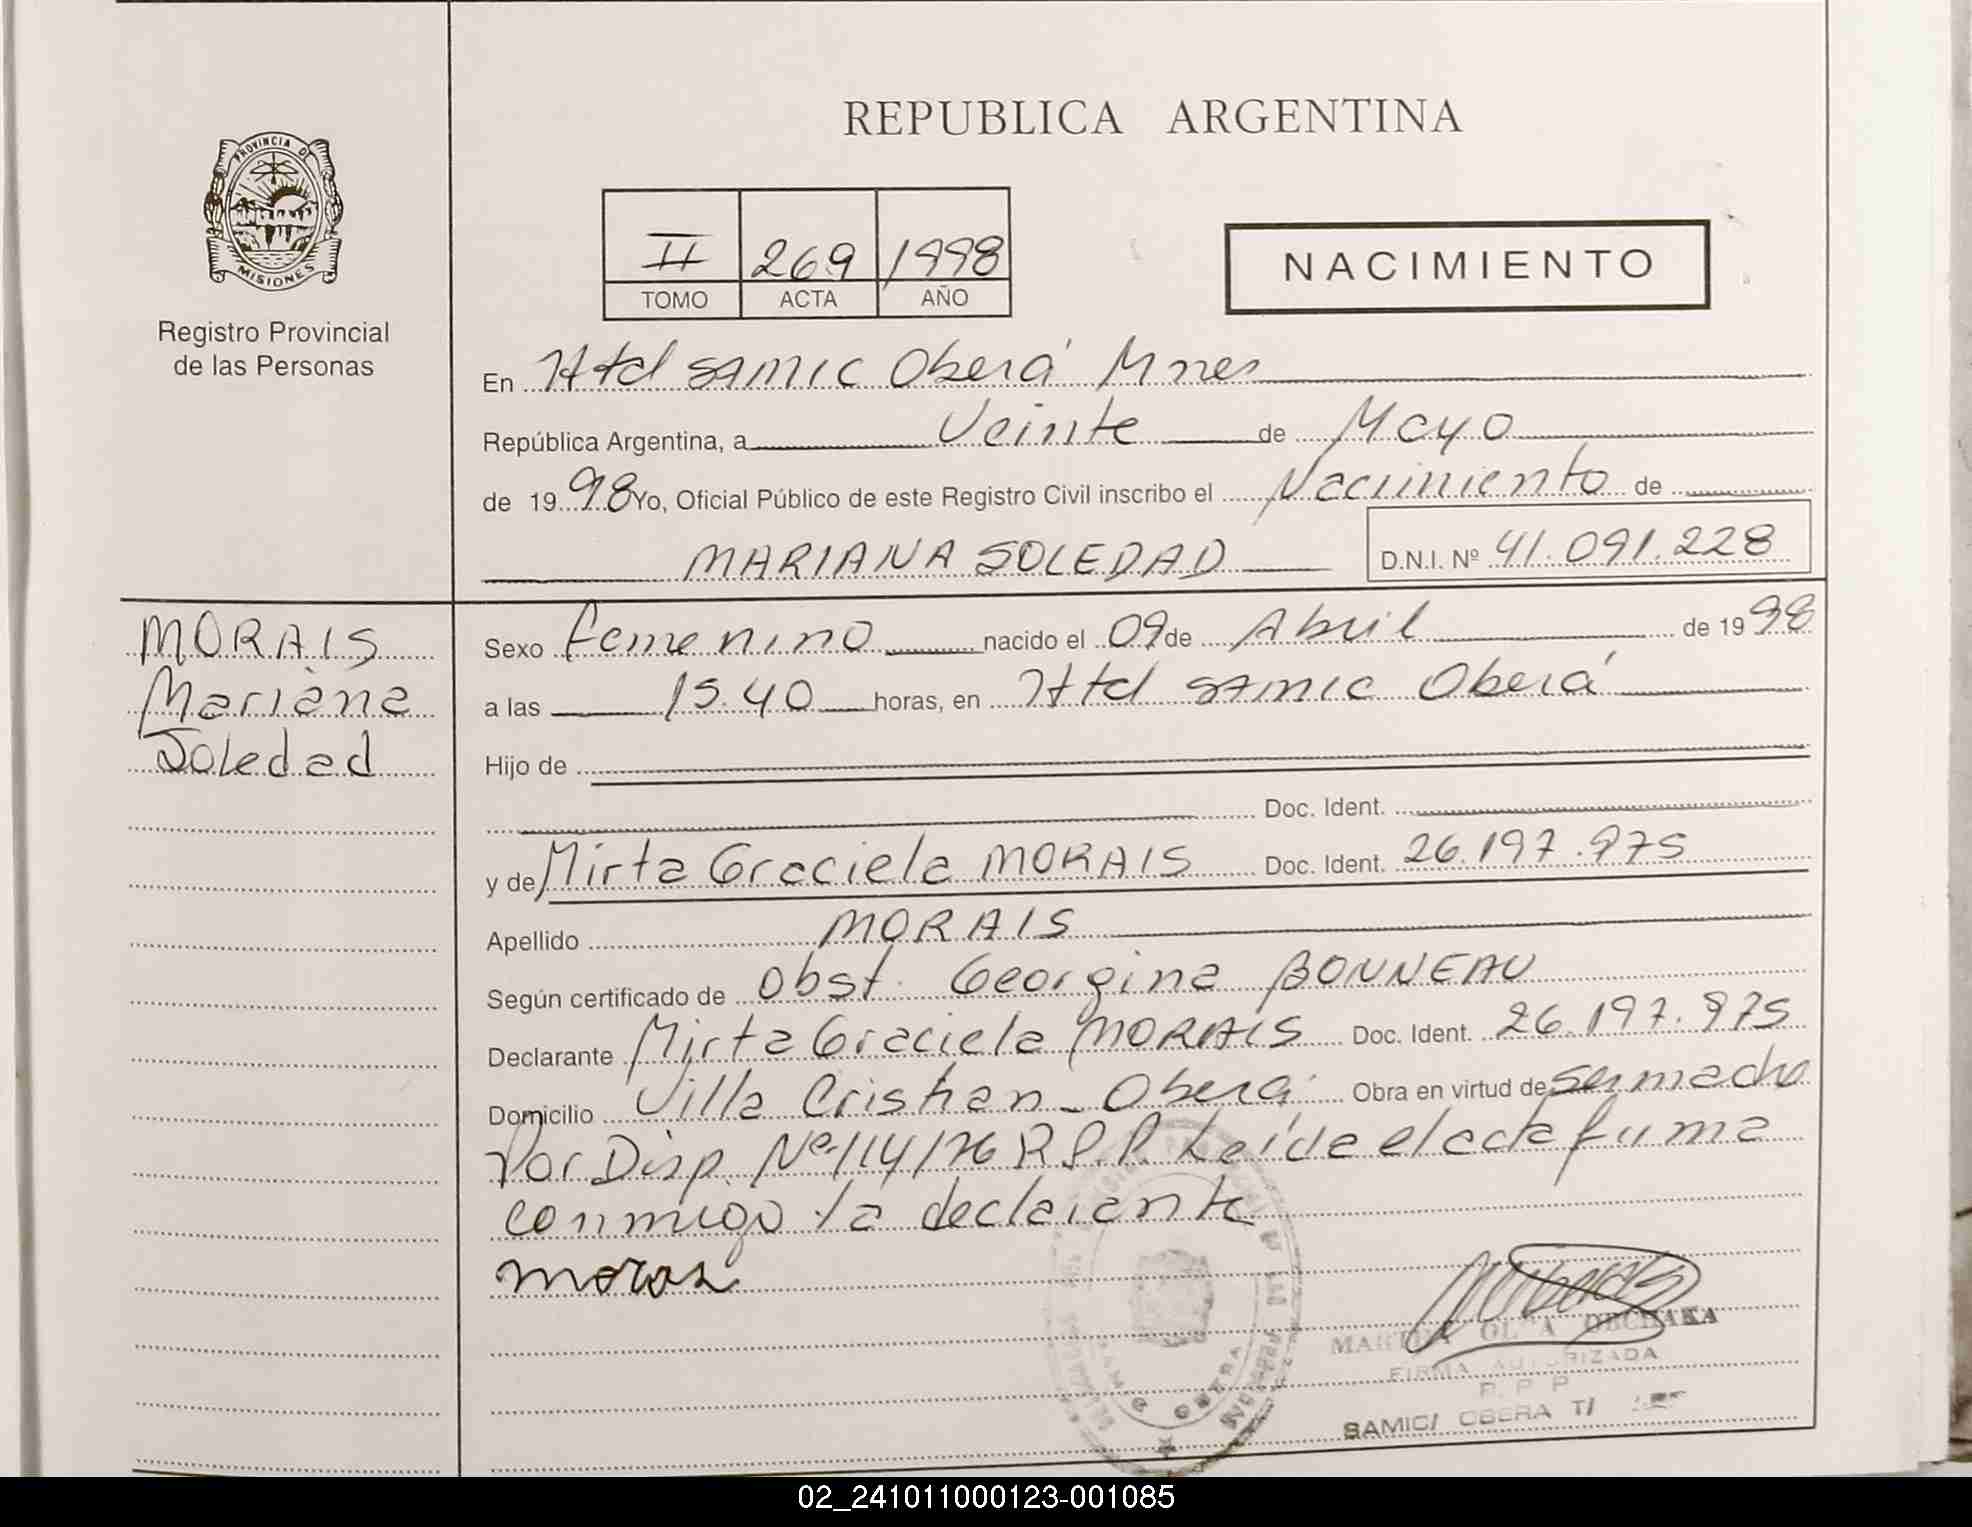 REPUBLICA ARGENTINA
PROVINCIA DE
MISIONES
Registro Provincial
de las Personas
II 269 1998
TOMO ACTA AÑO
NACIMIENTO
En Htal SAMIC Oberá Mnes
República Argentina, a Veinte de Mayo
de 1998 Yo, Oficial Público de este Registro Civil inscribo el Nacimiento de
MARIANA SOLEDAD D.N.I. Nº 41.091.228
MORAIS
Mariana
Soledad
Sexo femenino nacido el 09 de Abril de 1998
a las 15.40 horas, en Htal SAMIC Oberá
Hijo de
Doc. Ident.
y de Mirta Graciela MORAIS Doc. Ident. 26.197.975
Apellido MORAIS
Según certificado de Obst. Georgina BONNEAU
Declarante Mirta Graciela MORAIS Doc. Ident. 26.197.975
Domicilio Villa Cristian - Oberá Obra en virtud de
Por Disp. Nº 114/76 R.P.P. Leída el acta firma
conmigo la declarante
FIRMA AUTORIZADA
R.P.P
SAMIC/ OBERA
02_241011000123-001085